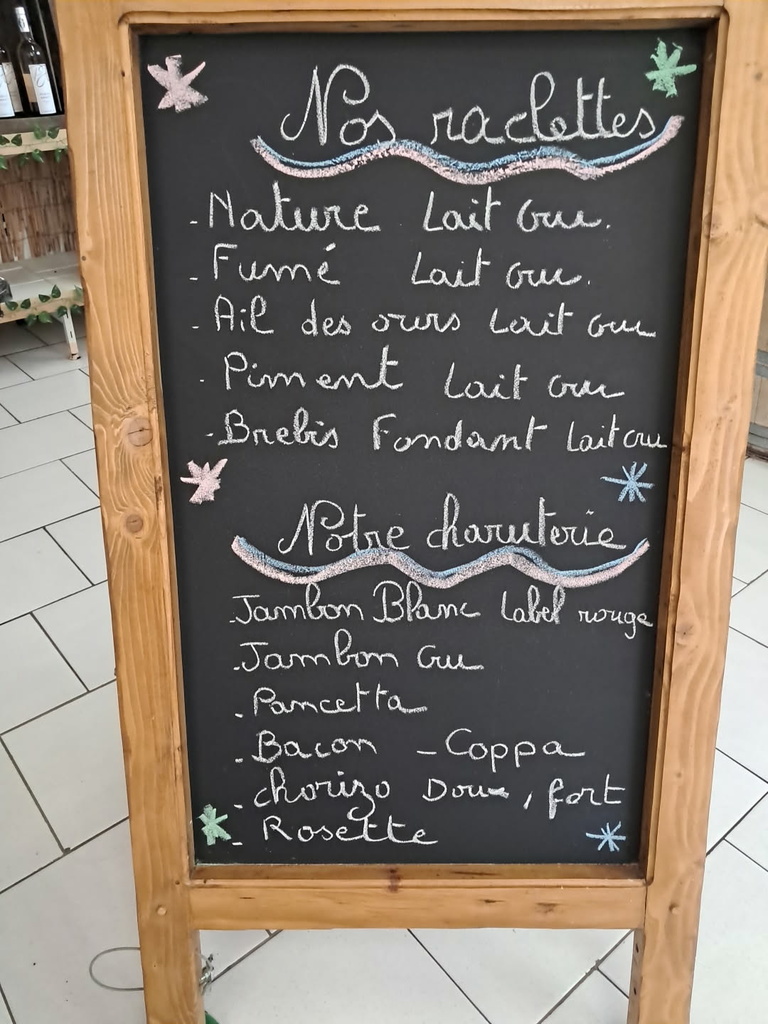 Nos raclettes
- Nature Lait cru.
- Fumé Lait cru.
- Ail des ours Lait cru
- Piment Lait cru
- Brebis Fondant Lait cru
Notre charcuterie
- Jambon Blanc Label rouge
- Jambon Cru
- Pancetta
- Bacon - Coppa
- chorizo Doux, fort
- Rosette